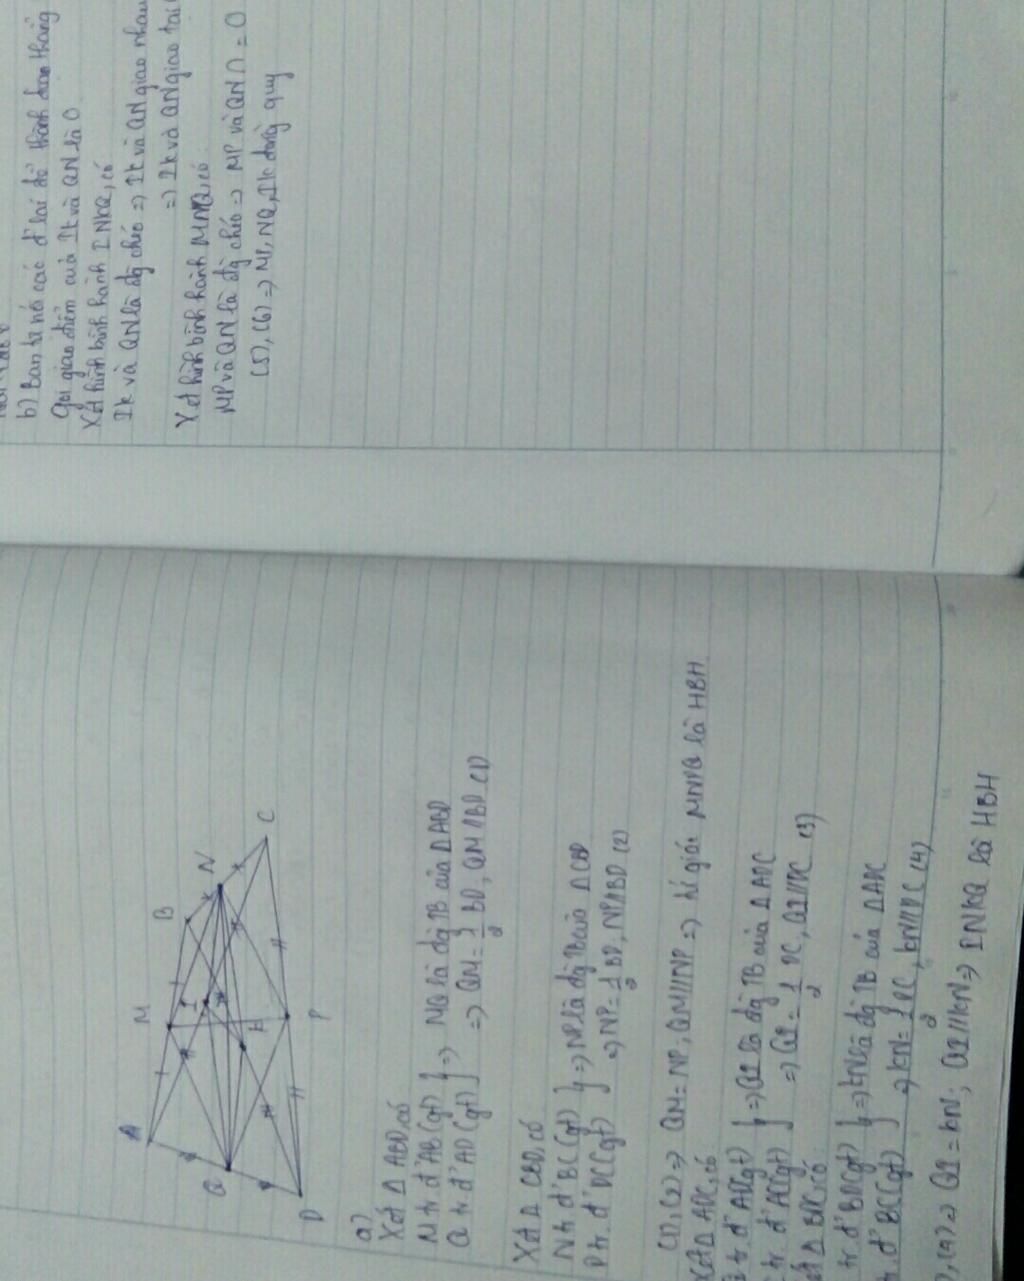 A
M
B
N
C
Q
I
K
D
P
a)
Xét Δ ABD, có
M tr đ' AB (gt) } => MQ là đg TB của Δ ABD
Q tr đ' AD (gt) } => QM = 1/2 BD, QM // BD (1)
Xét Δ CBD, có
N tr đ' BC (gt) } => NP là đg TB của Δ CBD
P tr đ' DC (gt) } => NP = 1/2 BD, NP // BD (2)
(1), (2) => QM = NP; QM // NP => tứ giác MNPQ là HBH
Xét Δ ADC, có
tr đ' AD (gt) } => QI là đg TB của Δ ADC
tr đ' AC (gt) } => QI = 1/2 DC, QI // DC (3)
Δ BDC, có
tr đ' BD (gt) } => KN là đg TB của Δ
tr đ' BC (gt) } => KN = 1/2 DC, KN // DC (4)
, (4) => QI = KN; QI // KN => INKQ là HBH
b) Bạn tự nối các đ' lại để thành đoạn thẳng
Gọi giao điểm của IK và QN là O
Xét hình bình hành INKQ, có
IK và QN là đg chéo => IK và QN giao nhau
=> IK và QN giao tại
Xét hình bình hành MNPQ, có
MP và QN là đg chéo => MP và QN ∩ = O
(5), (6) => MP, NQ, IK đồng quy